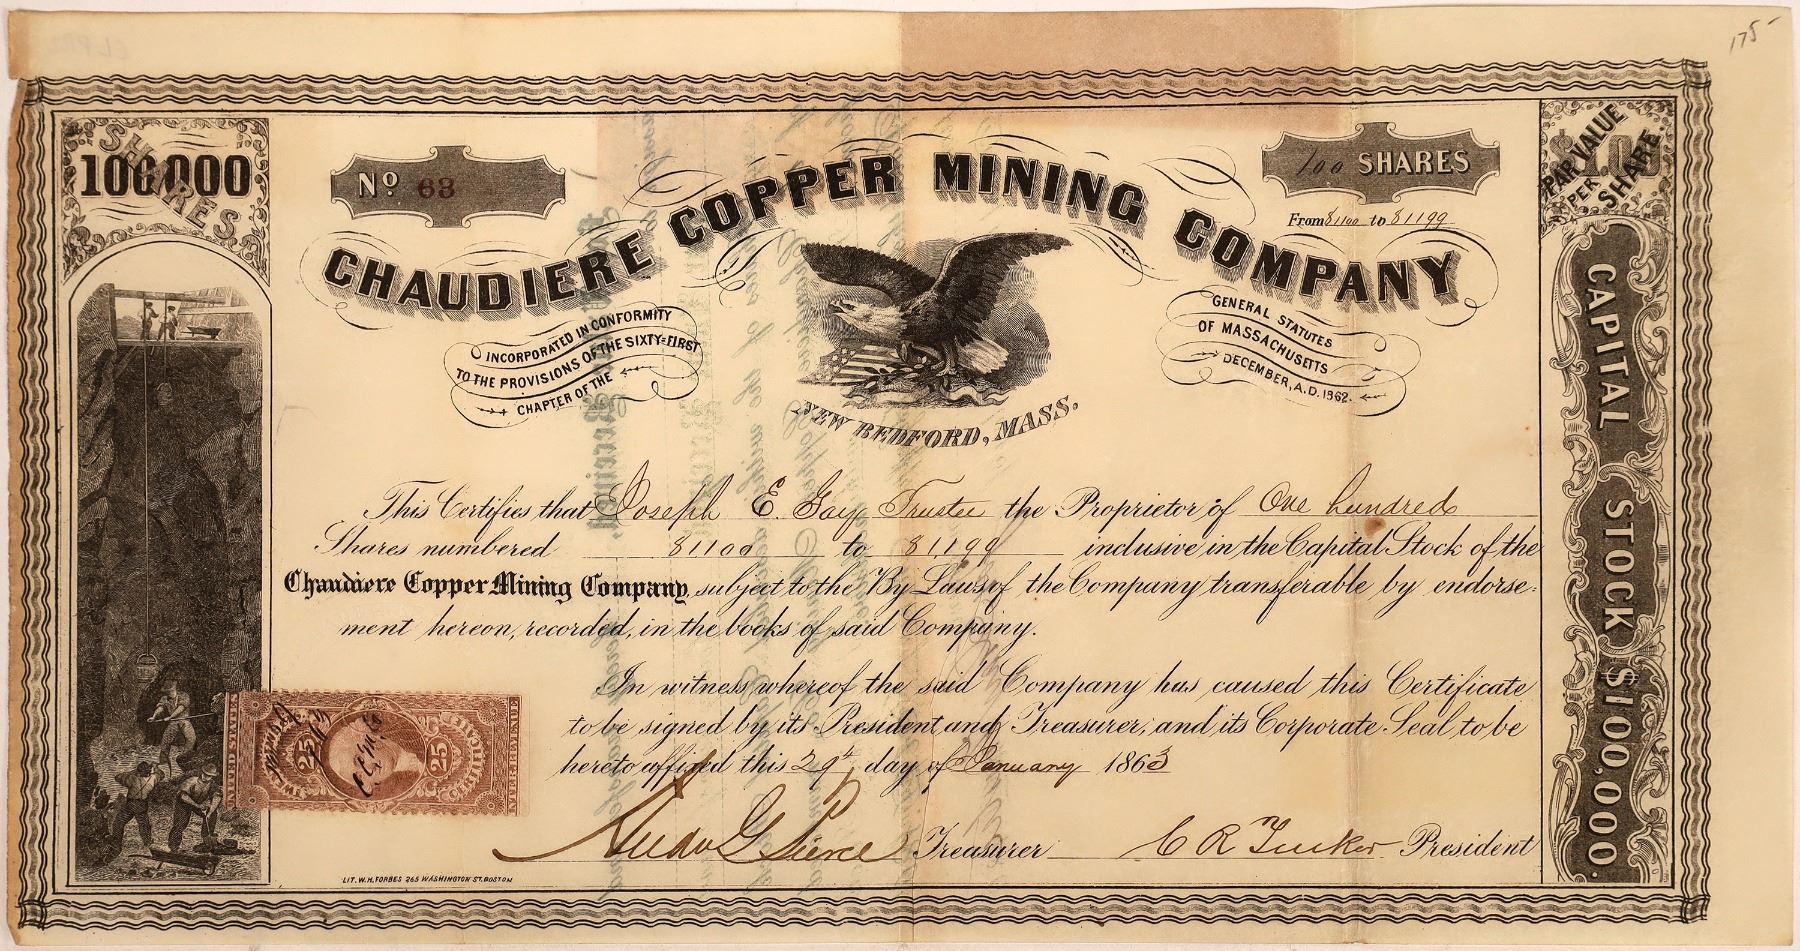 175-
100,000
SHARES
No 63
100 SHARES
From 81100 to 81199
$1.00
PAR VALUE
PER
SHARE
CHAUDIERE COPPER MINING COMPANY
INCORPORATED IN CONFORMITY
TO THE PROVISIONS OF THE SIXTY=FIRST
CHAPTER OF THE
GENERAL STATUTES
OF MASSACHUSETTS
DECEMBER, A.D. 1862.
NEW BEDFORD, MASS.
CAPITAL STOCK $100,000.
This Certifies that Joseph E. Gay Trustee the Proprietor of One hundred
Shares numbered 81100 to 81,199 inclusive in the Capital Stock of the
Chaudiere Copper Mining Company, subject to the By Laws of the Company transferable by endorse=
ment hereon, recorded, in the books of said Company.
In witness whereof the said Company has caused this Certificate
to be signed by its President and Treasurer, and its Corporate Seal to be
hereto affixed this 29th day of January 1863
Pierce Treasurer C R Tucker President
UNITED STATES
25 25
INTER. REVENUE
LIT. W. H. FORBES 265 WASHINGTON ST. BOSTON